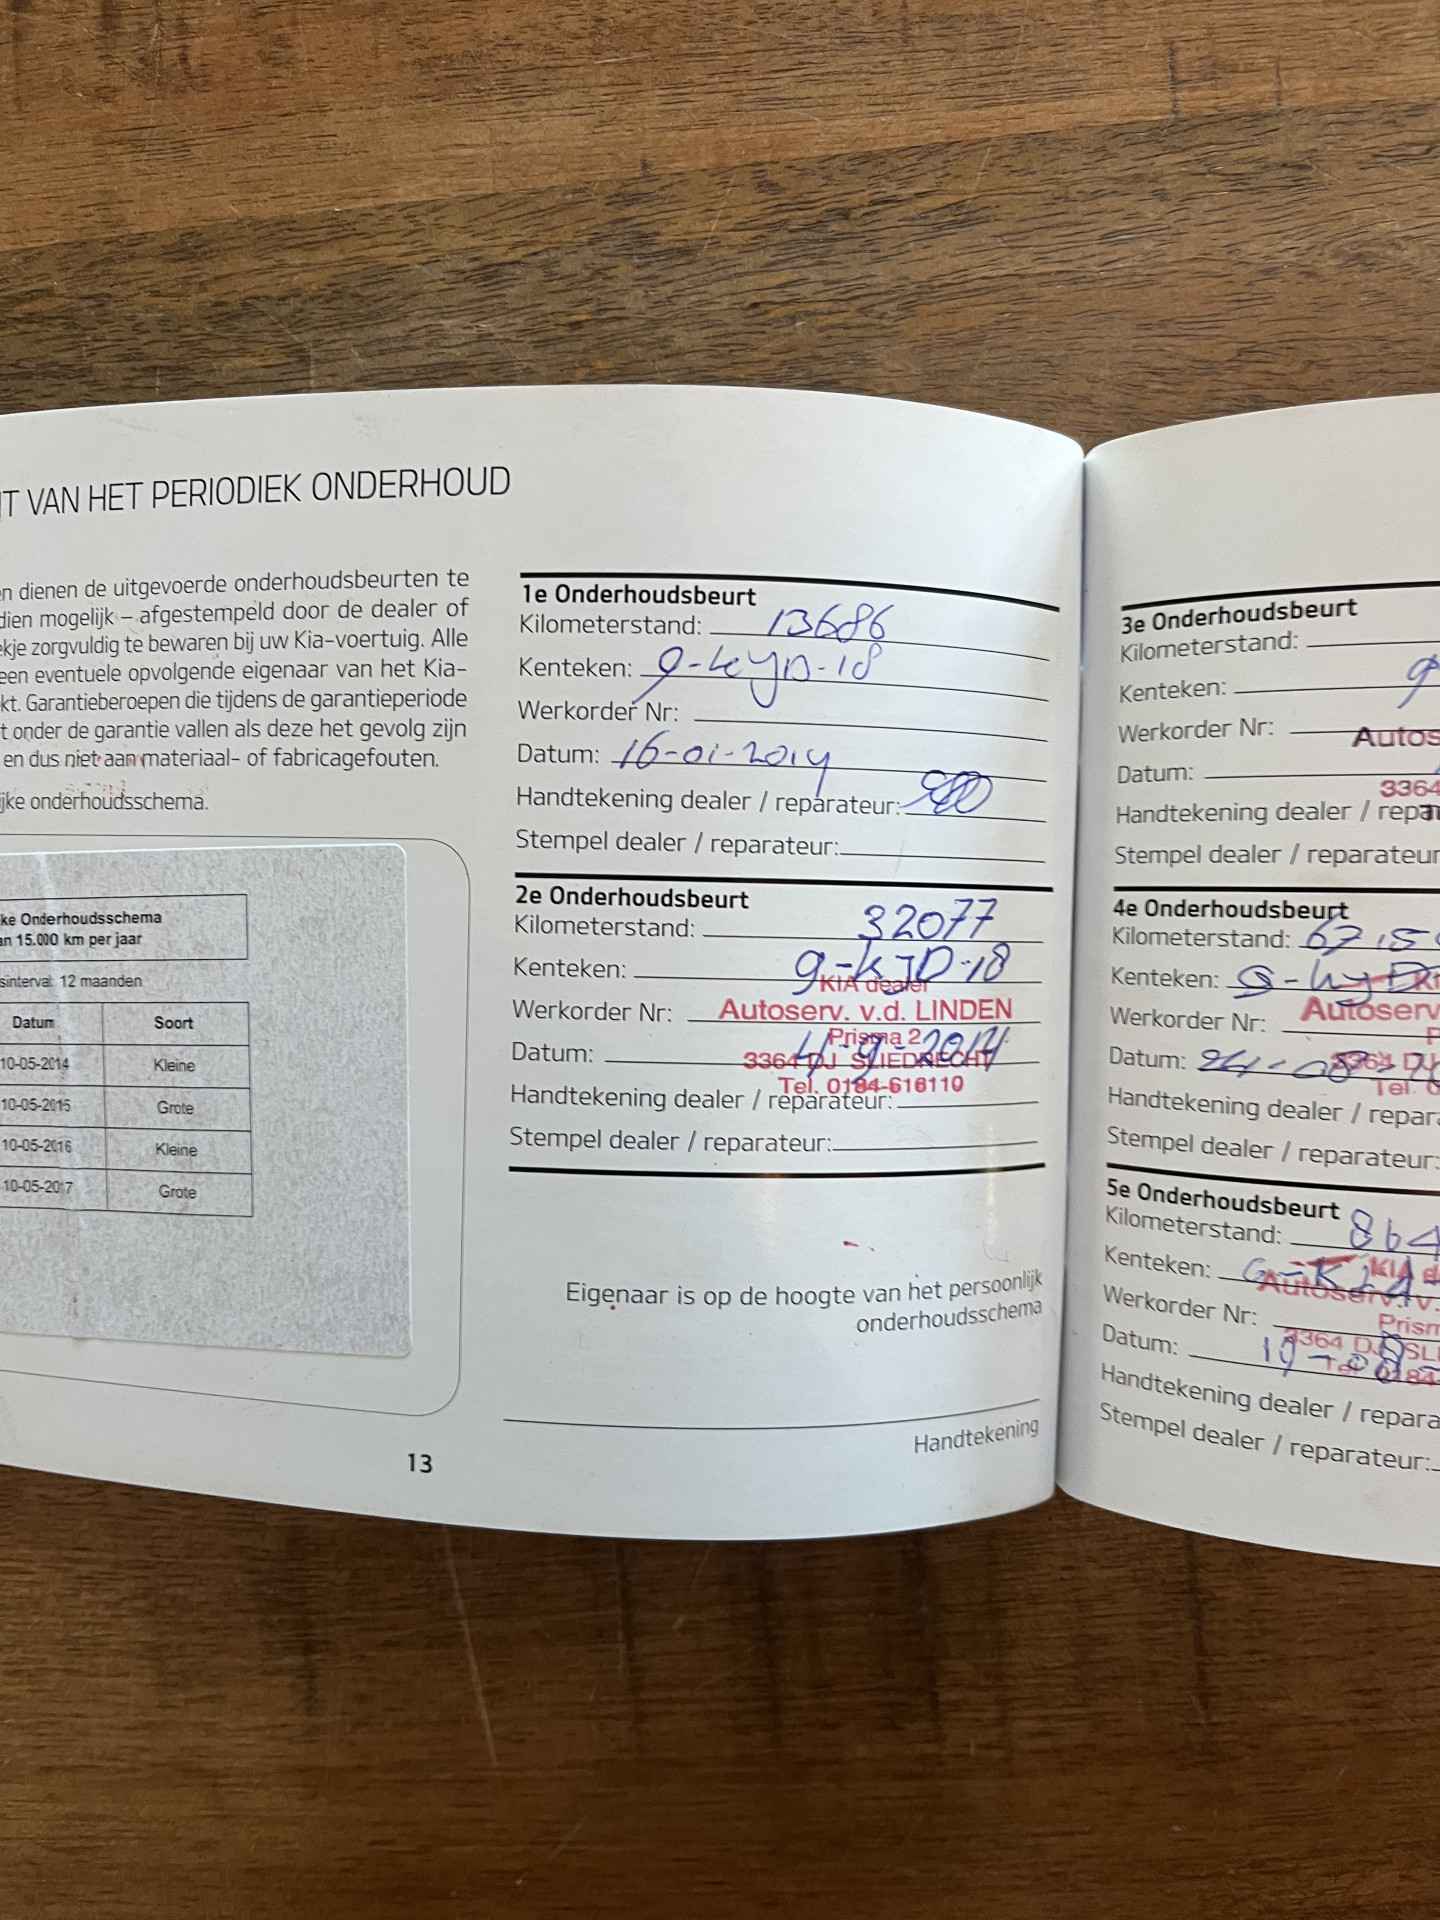 VAN HET PERIODIEK ONDERHOUD
dienen de uitgevoerde onderhoudsbeurten te
dien mogelijk – afgestempeld door de dealer of
ekje zorgvuldig te bewaren bij uw Kia-voertuig. Alle
een eventuele opvolgende eigenaar van het Kia-
kt. Garantieberoepen die tijdens de garantieperiode
t onder de garantie vallen als deze het gevolg zijn
en dus niet aan materiaal- of fabricagefouten.
ijke onderhoudsschema.
ke Onderhoudsschema
an 15.000 km per jaar
sinterval: 12 maanden
Datum Soort
10-05-2014 Kleine
10-05-2015 Grote
10-05-2016 Kleine
10-05-2017 Grote
13
1e Onderhoudsbeurt
Kilometerstand: 13686
Kenteken: 9-kyD-18
Werkorder Nr:
Datum: 16-01-2014
Handtekening dealer / reparateur:
Stempel dealer / reparateur:
2e Onderhoudsbeurt
Kilometerstand: 32077
Kenteken: 9-KJD-18
KIA dealer
Werkorder Nr: Autoserv. v.d. LINDEN
Prisma 2
Datum: 4-9-2014
3364 DJ SLIEDRECHT
Tel. 0184-616110
Handtekening dealer / reparateur:
Stempel dealer / reparateur:
Eigenaar is op de hoogte van het persoonlijk
onderhoudsschema
Handtekening
3e Onderhoudsbeurt
Kilometerstand:
Kenteken: 9
Werkorder Nr:
Autos
Datum:
3364
Handtekening dealer / repa
Stempel dealer / reparateur
4e Onderhoudsbeurt
Kilometerstand: 67.5
Kenteken:
Autoserv
Werkorder Nr:
Datum: 24-08-
3364 DJ
Tel. 0
Handtekening dealer / repar
Stempel dealer / reparateur:
5e Onderhoudsbeurt
Kilometerstand: 864
Kenteken:
KIA d
Autoserv. v.
Werkorder Nr:
Prism
Datum: 19-08-
3364 DJ SL
Tel. 0184
Handtekening dealer / repara
Stempel dealer / reparateur: